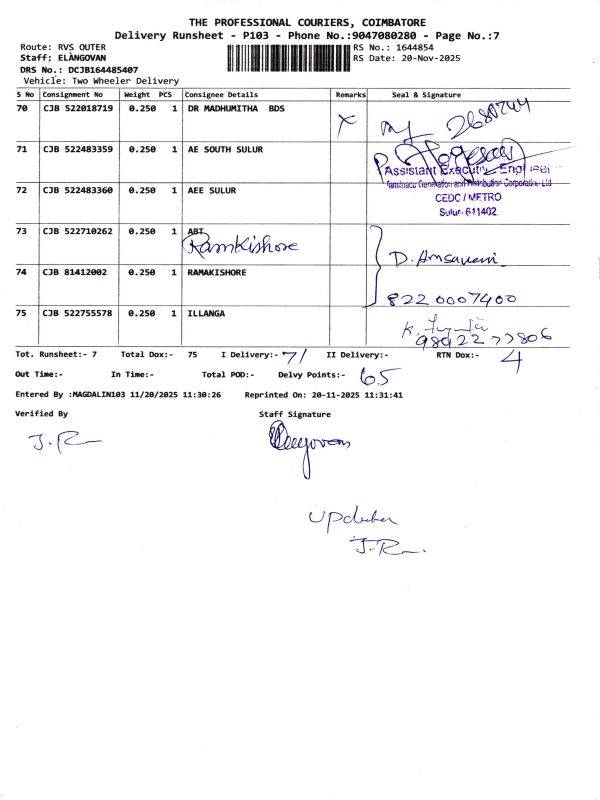 THE PROFESSIONAL COURIERS, COIMBATORE
Delivery Runsheet - P103 - Phone No.:9047080280 - Page No.:7
Route: RVS OUTER RS No.: 1644854
Staff: ELANGOVAN RS Date: 20-Nov-2025
DRS No.: DCJB164485407
Vehicle: Two Wheeler Delivery
S No Consignment No Weight PCS Consignee Details Remarks Seal & Signature
70 CJB 522018719 0.250 1 DR MADHUMITHA BDS X
71 CJB 522483359 0.250 1 AE SOUTH SULUR
Assistant Executive Engineer
Tamilnadu Generation and Distribution Corporation Ltd
72 CJB 522483360 0.250 1 AEE SULUR CEDC / METRO
Sulur-641402
73 CJB 522710262 0.250 1 ABT
Ramkishore
D. Amsaveni
74 CJB 81412002 0.250 1 RAMAKISHORE
8220007400
75 CJB 522755578 0.250 1 ILLANGA
9892277806
Tot. Runsheet:- 7 Total Dox:- 75 I Delivery:- 71 II Delivery:- RTN Dox:- 4
Out Time:- In Time:- Total POD:- Delvy Points:- 65
Entered By :MAGDALIN103 11/20/2025 11:30:26 Reprinted On: 20-11-2025 11:31:41
Verified By Staff Signature
J.R
Elangovan
J.R